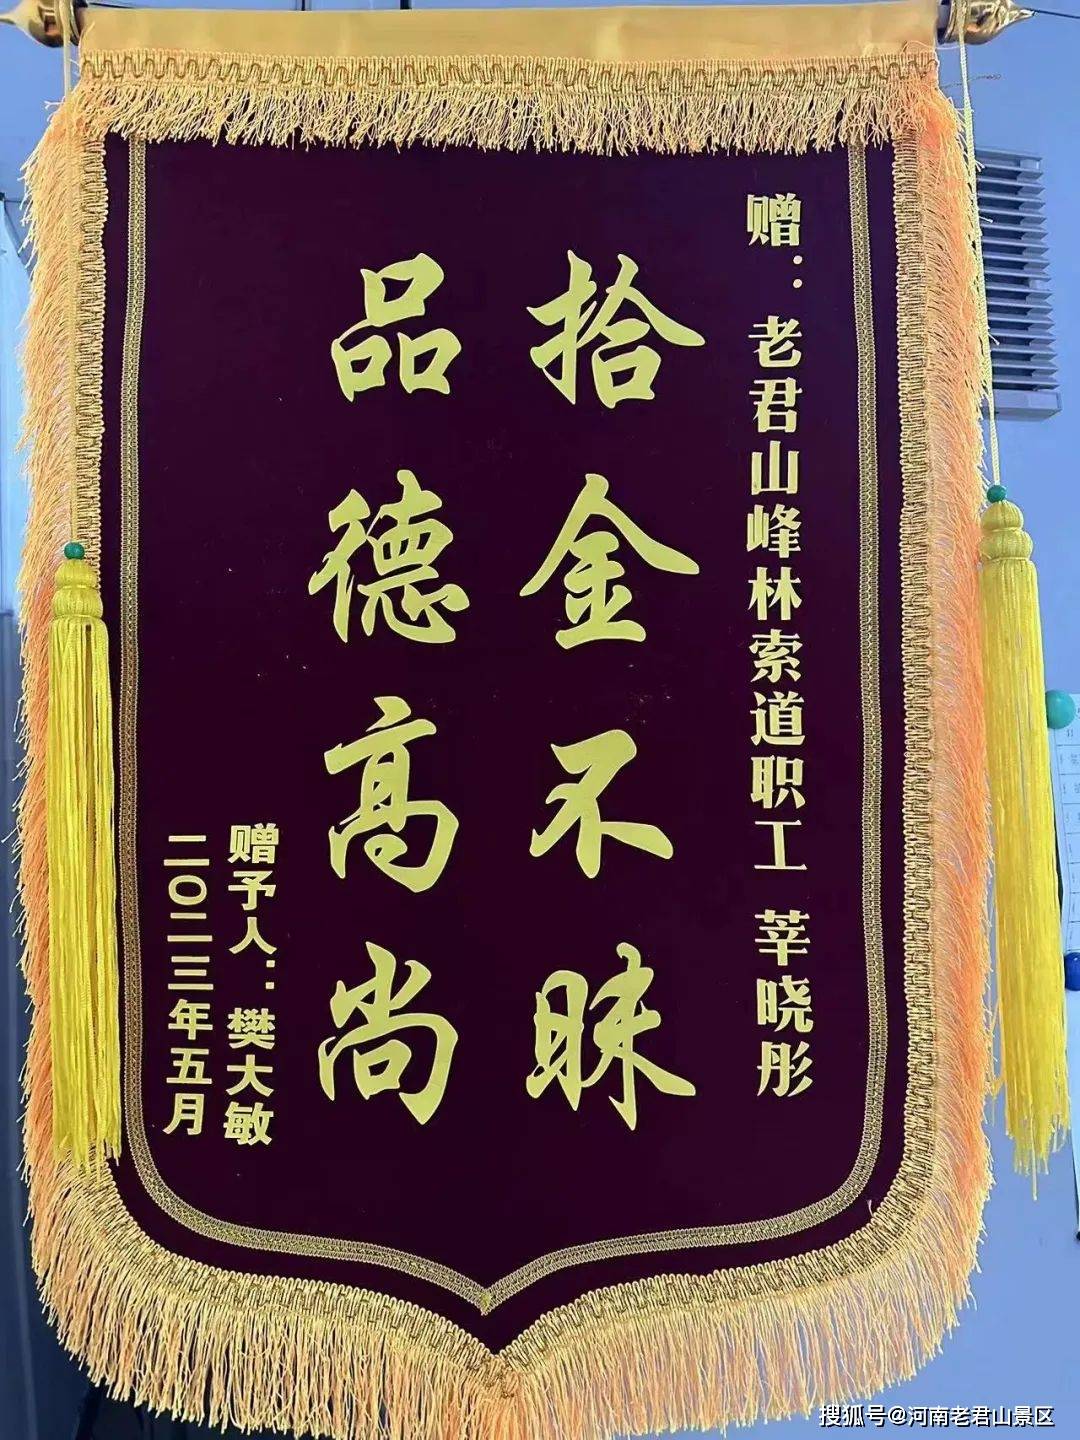 赠：老君山峰林索道职工 莘晓彤
拾金不昧
品德高尚
赠予人：樊大敏
二〇二三年五月
搜狐号@河南老君山景区